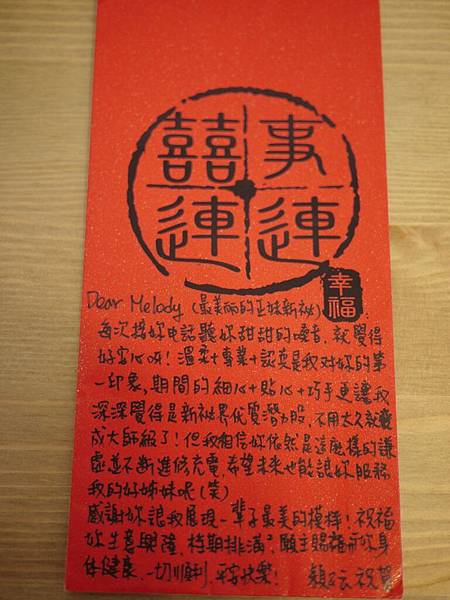 囍事
連連
幸福
Dear Melody (最美丽的正妹新祕):
每次接妳電話聽妳甜甜的嗓音,就覺得
好安心呀!溫柔+專業+認真是我對妳的第
一印象,期間的細心+貼心+巧手更讓我
深深覺得是新祕界優質潛力股,不用太久就變
成大師級了!但我相信妳依然是這麼樣的謙
虛並不斷進修充電,希望未來也能讓妳服務
我的好姊妹呢(笑)
感謝妳讓我展現一輩子最美的模樣!祝福
妳生意興隆,檔期排滿滿,願主賜福於妳身
体健康、一切順利、平安快樂! 祝賀